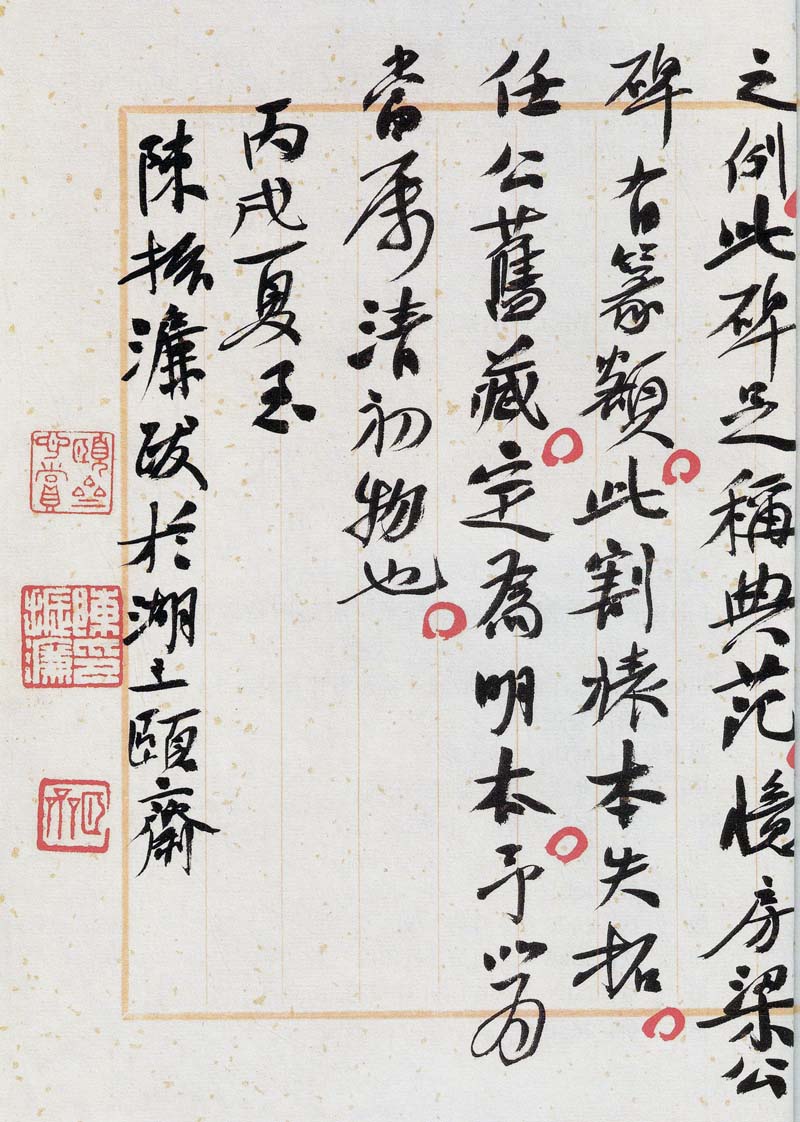 之例此碑足稱典范憶房梁公
碑有篆額此割裱本失拓
任公舊藏定為明本予以為
當屬清初物也
丙戌夏玉
陳振濂跋於湖上頤齋
陳振濂